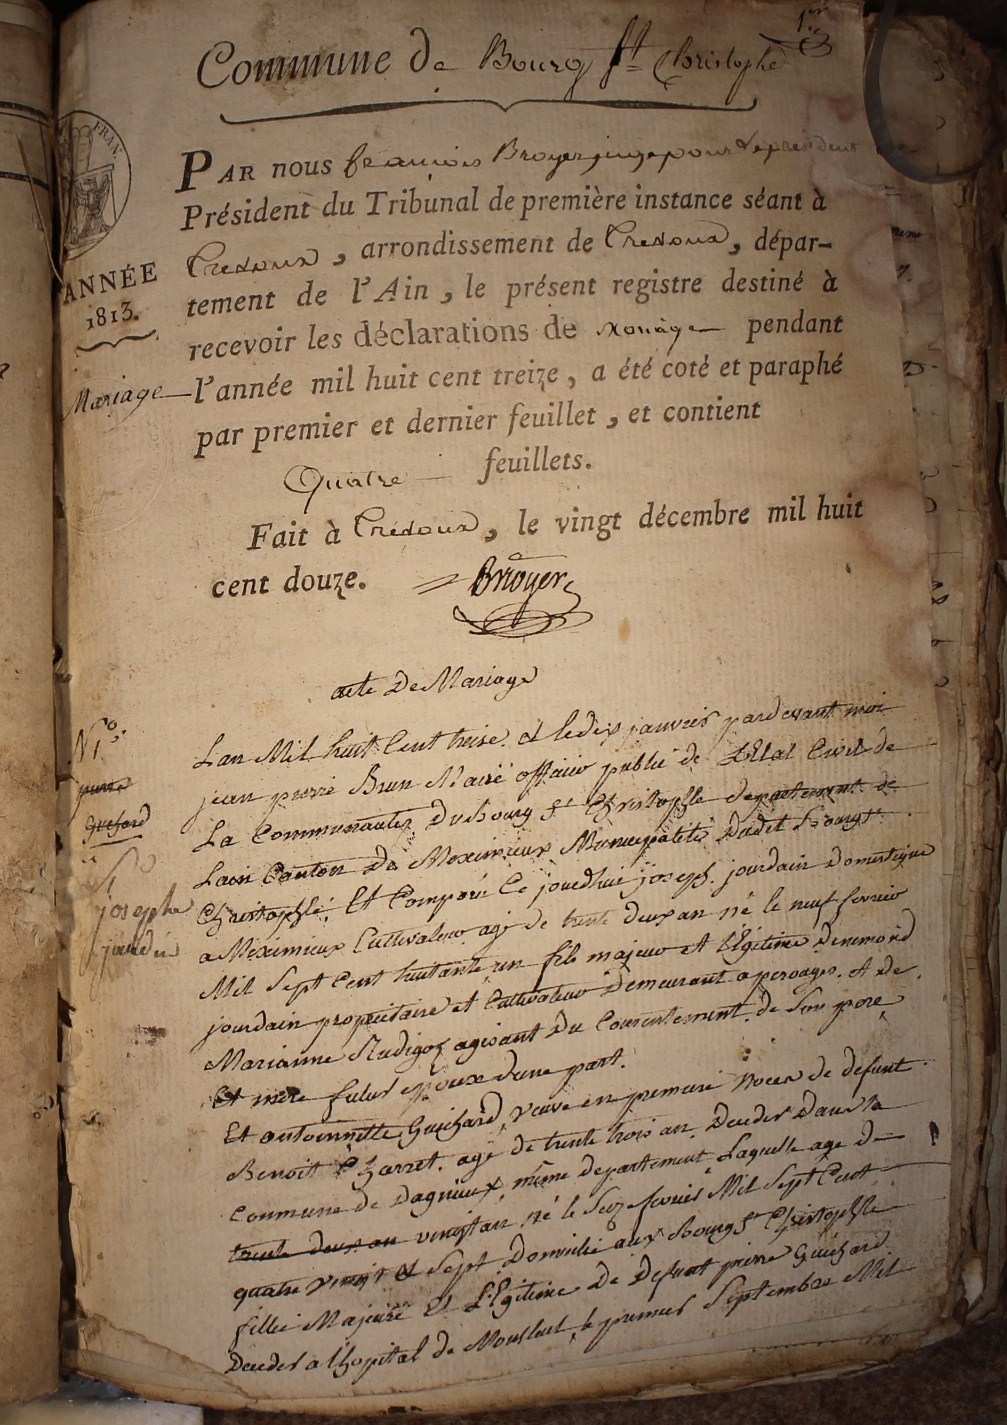 1er
Commune de Bourg St Christophe
FRAN.
PAR nous francois Broyer juge pour le président
Président du Tribunal de première instance séant à
Trevoux, arrondissement de Trevoux, dépar-
ANNÉE
1813.
tement de l'Ain, le présent registre destiné à
recevoir les déclarations de Mariage pendant
Mariage
l'année mil huit cent treize, a été coté et paraphé
par premier et dernier feuillet, et contient
Quatre feuillets.
Fait à Trévoux, le vingt décembre mil huit
cent douze. Broyer
acte De Mariage
N° 1er
Guichard
joseph
jourdin
Lan Mil huit Cent treise et le dix janvier pardevant moi
jean pierre Brun Maire officier publie de L'Etat Civil de
La Communautez Du Bourg St Christophle departement de
Lain Canton De Meximieux Municipalité Dudit Bourg St
Christophle, Et Comparu Ce jourdhui joseph jourdain Domestique
a Meximieux Cultivateur agé de trente deux an né le neuf fevrier
Mil Sept Cent huitante un fils majeur et Légitime Deremond
jourdain propriétaire et Cultivateur Demeurant a perouges et De
Marianne Rudigoz agissant Du Consentement de Son pere
Et mere futur epoux dune part.
Et antoinette Guichard, veuve en premiere Noces de defunt
Benoit Charret agé de trente trois an Decedes Dans la
Commune de Dagnieux, même departement Laquelle age De
trente deux an vingt an né le Seize fevrier Mil Sept Cent
quatre vingt et Sept Domicilié aux Bourg St Christophle
fille Majeure Et Légitime De Defunt pierre Guichard
Decedes a lhopital de Montluel, le premier Septembre Mil